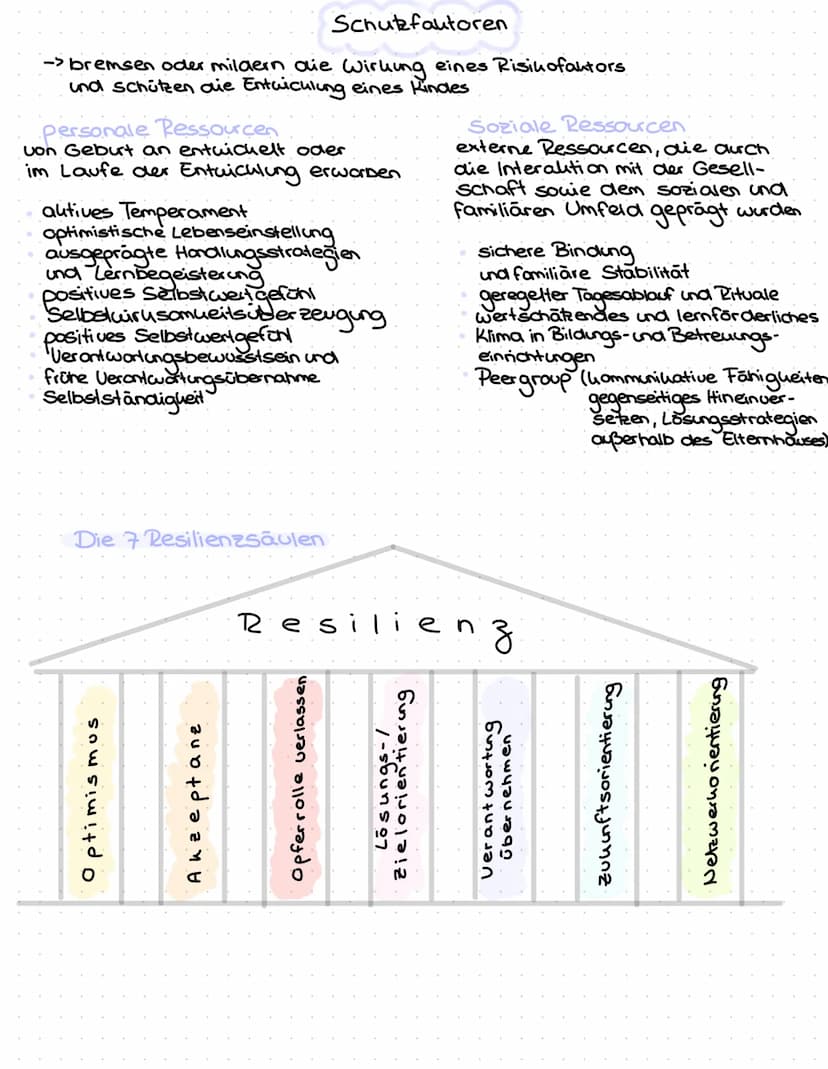 Schutzfaktoren
-> bremsen oder mildern die Wirkung eines Risikofaktors
und schützen die Entwicklung eines Kindes
personale Ressourcen
von Geburt an entwickelt oder
im Laufe der Entwicklung erworben
aktives Temperament
optimistische Lebenseinstellung
ausgeprägte Handlungsstrategien
und Lernbegeisterung
positives Selbstwertgefühl
Selbstwirksamkeitsüberzeugung
positives Selbstwertgefühl
Verantwortungsbewusstsein und
frühe Verantwortungsübernahme
Selbstständigkeit
Soziale Ressourcen
externe Ressourcen, die durch
die Interaktion mit der Gesell-
schaft sowie dem sozialen und
familiären Umfeld geprägt wurden
sichere Bindung
und familiäre Stabilität
geregelter Tagesablauf und Rituale
wertschätzendes und lernförderliches
Klima in Bildungs- und Betreuungs-
einrichtungen
Peergroup (kommunikative Fähigkeiten
gegenseitiges Hineinver-
setzen, Lösungsstrategien
außerhalb des Elternhauses)
Die 7 Resilienzsäulen
Resilienz
Optimismus
Akzeptanz
Opferrolle verlassen
Lösungs-/
Zielorientierung
Verantwortung
übernehmen
Zukunftsorientierung
Netzwerkorientierung